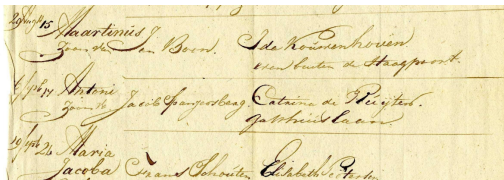 15 Maartinus J
Zoon van Jan Boon. Ida Kouwenhoven
even buiten de Haagpoort.
17 Antoni
Zoon v Jacob Spangoosbaag. Catrina de Ruijter.
Gasthuislaan
26 Maria
Jacoba Frans Schouten Elisabeth